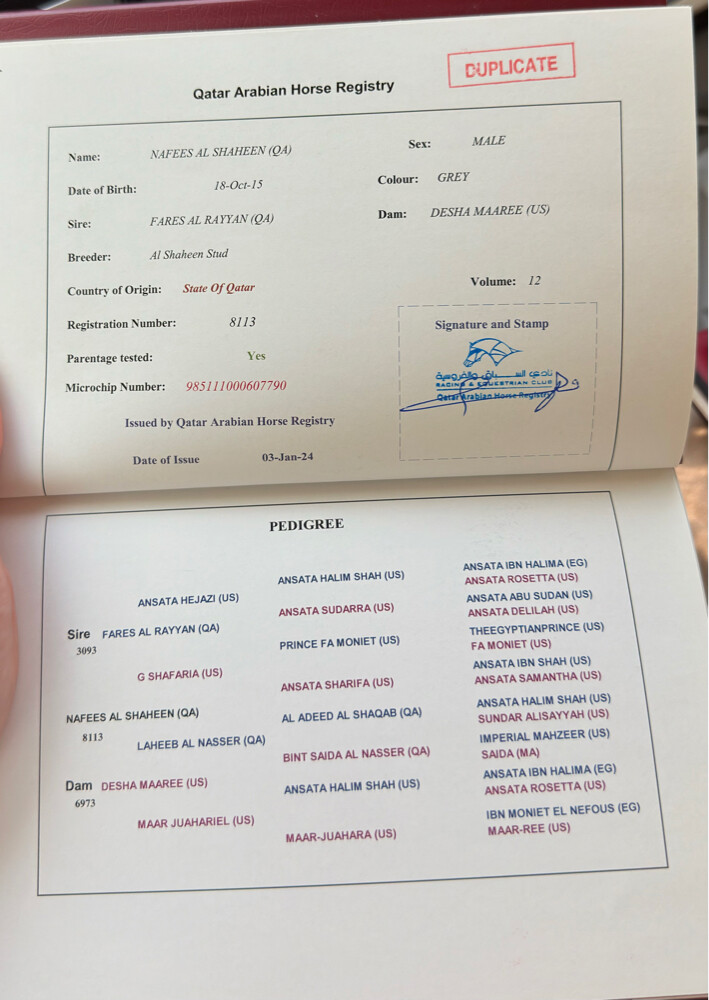 DUPLICATE
Qatar Arabian Horse Registry
Name: NAFEES AL SHAHEEN (QA) Sex: MALE
Date of Birth: 18-Oct-15 Colour: GREY
Sire: FARES AL RAYYAN (QA) Dam: DESHA MAAREE (US)
Breeder: Al Shaheen Stud
Country of Origin: State Of Qatar Volume: 12
Registration Number: 8113 Signature and Stamp
Parentage tested: Yes
نادي السباق والفروسية
RACING & EQUESTRIAN CLUB
Microchip Number: 985111000607790
Qatar Arabian Horse Registry
Issued by Qatar Arabian Horse Registry
Date of Issue 03-Jan-24
PEDIGREE
ANSATA IBN HALIMA (EG)
ANSATA HALIM SHAH (US)
ANSATA ROSETTA (US)
ANSATA HEJAZI (US)
ANSATA ABU SUDAN (US)
ANSATA SUDARRA (US)
ANSATA DELILAH (US)
Sire FARES AL RAYYAN (QA)
3093
THEEGYPTIANPRINCE (US)
PRINCE FA MONIET (US)
FA MONIET (US)
G SHAFARIA (US)
ANSATA IBN SHAH (US)
ANSATA SHARIFA (US)
ANSATA SAMANTHA (US)
NAFEES AL SHAHEEN (QA)
8113
ANSATA HALIM SHAH (US)
AL ADEED AL SHAQAB (QA)
SUNDAR ALISAYYAH (US)
LAHEEB AL NASSER (QA)
IMPERIAL MAHZEER (US)
BINT SAIDA AL NASSER (QA)
SAIDA (MA)
Dam DESHA MAAREE (US)
6973
ANSATA IBN HALIMA (EG)
ANSATA HALIM SHAH (US)
ANSATA ROSETTA (US)
MAAR JUAHARIEL (US)
IBN MONIET EL NEFOUS (EG)
MAAR-JUAHARA (US)
MAAR-REE (US)